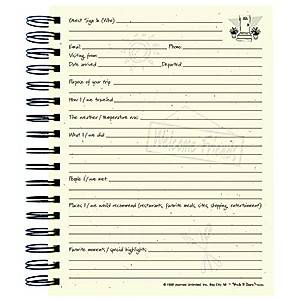 Guest Sign In (Who)
Email Phone:
Visiting from
Date arrived Departed
Purpose of your trip
How I / we traveled
The weather / temperature was
What I / we did
Welcome Friends
People I / we met
Places I / we would recommend (restaurants, favorite meals, sites, shopping, entertainment)
Favorite moments / special highlights
© 1998 Journals Unlimited, Inc. Bay City, MI